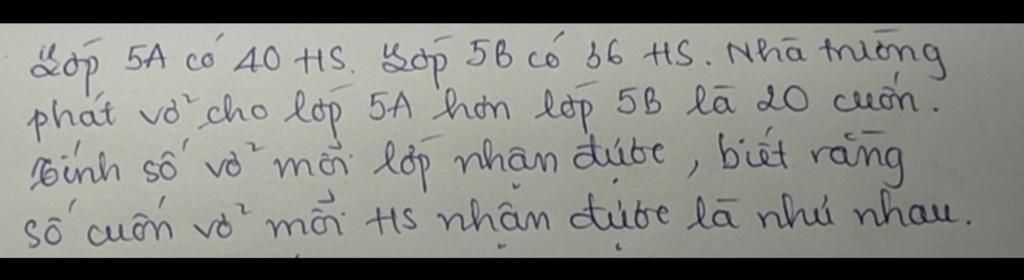 Lớp 5A có 40 HS. Lớp 5B có 36 HS. Nhà trường
phát vở cho lớp 5A hơn lớp 5B là 20 cuốn.
Tính số vở mỗi lớp nhận được, biết rằng
số cuốn vở mỗi HS nhận được là như nhau.